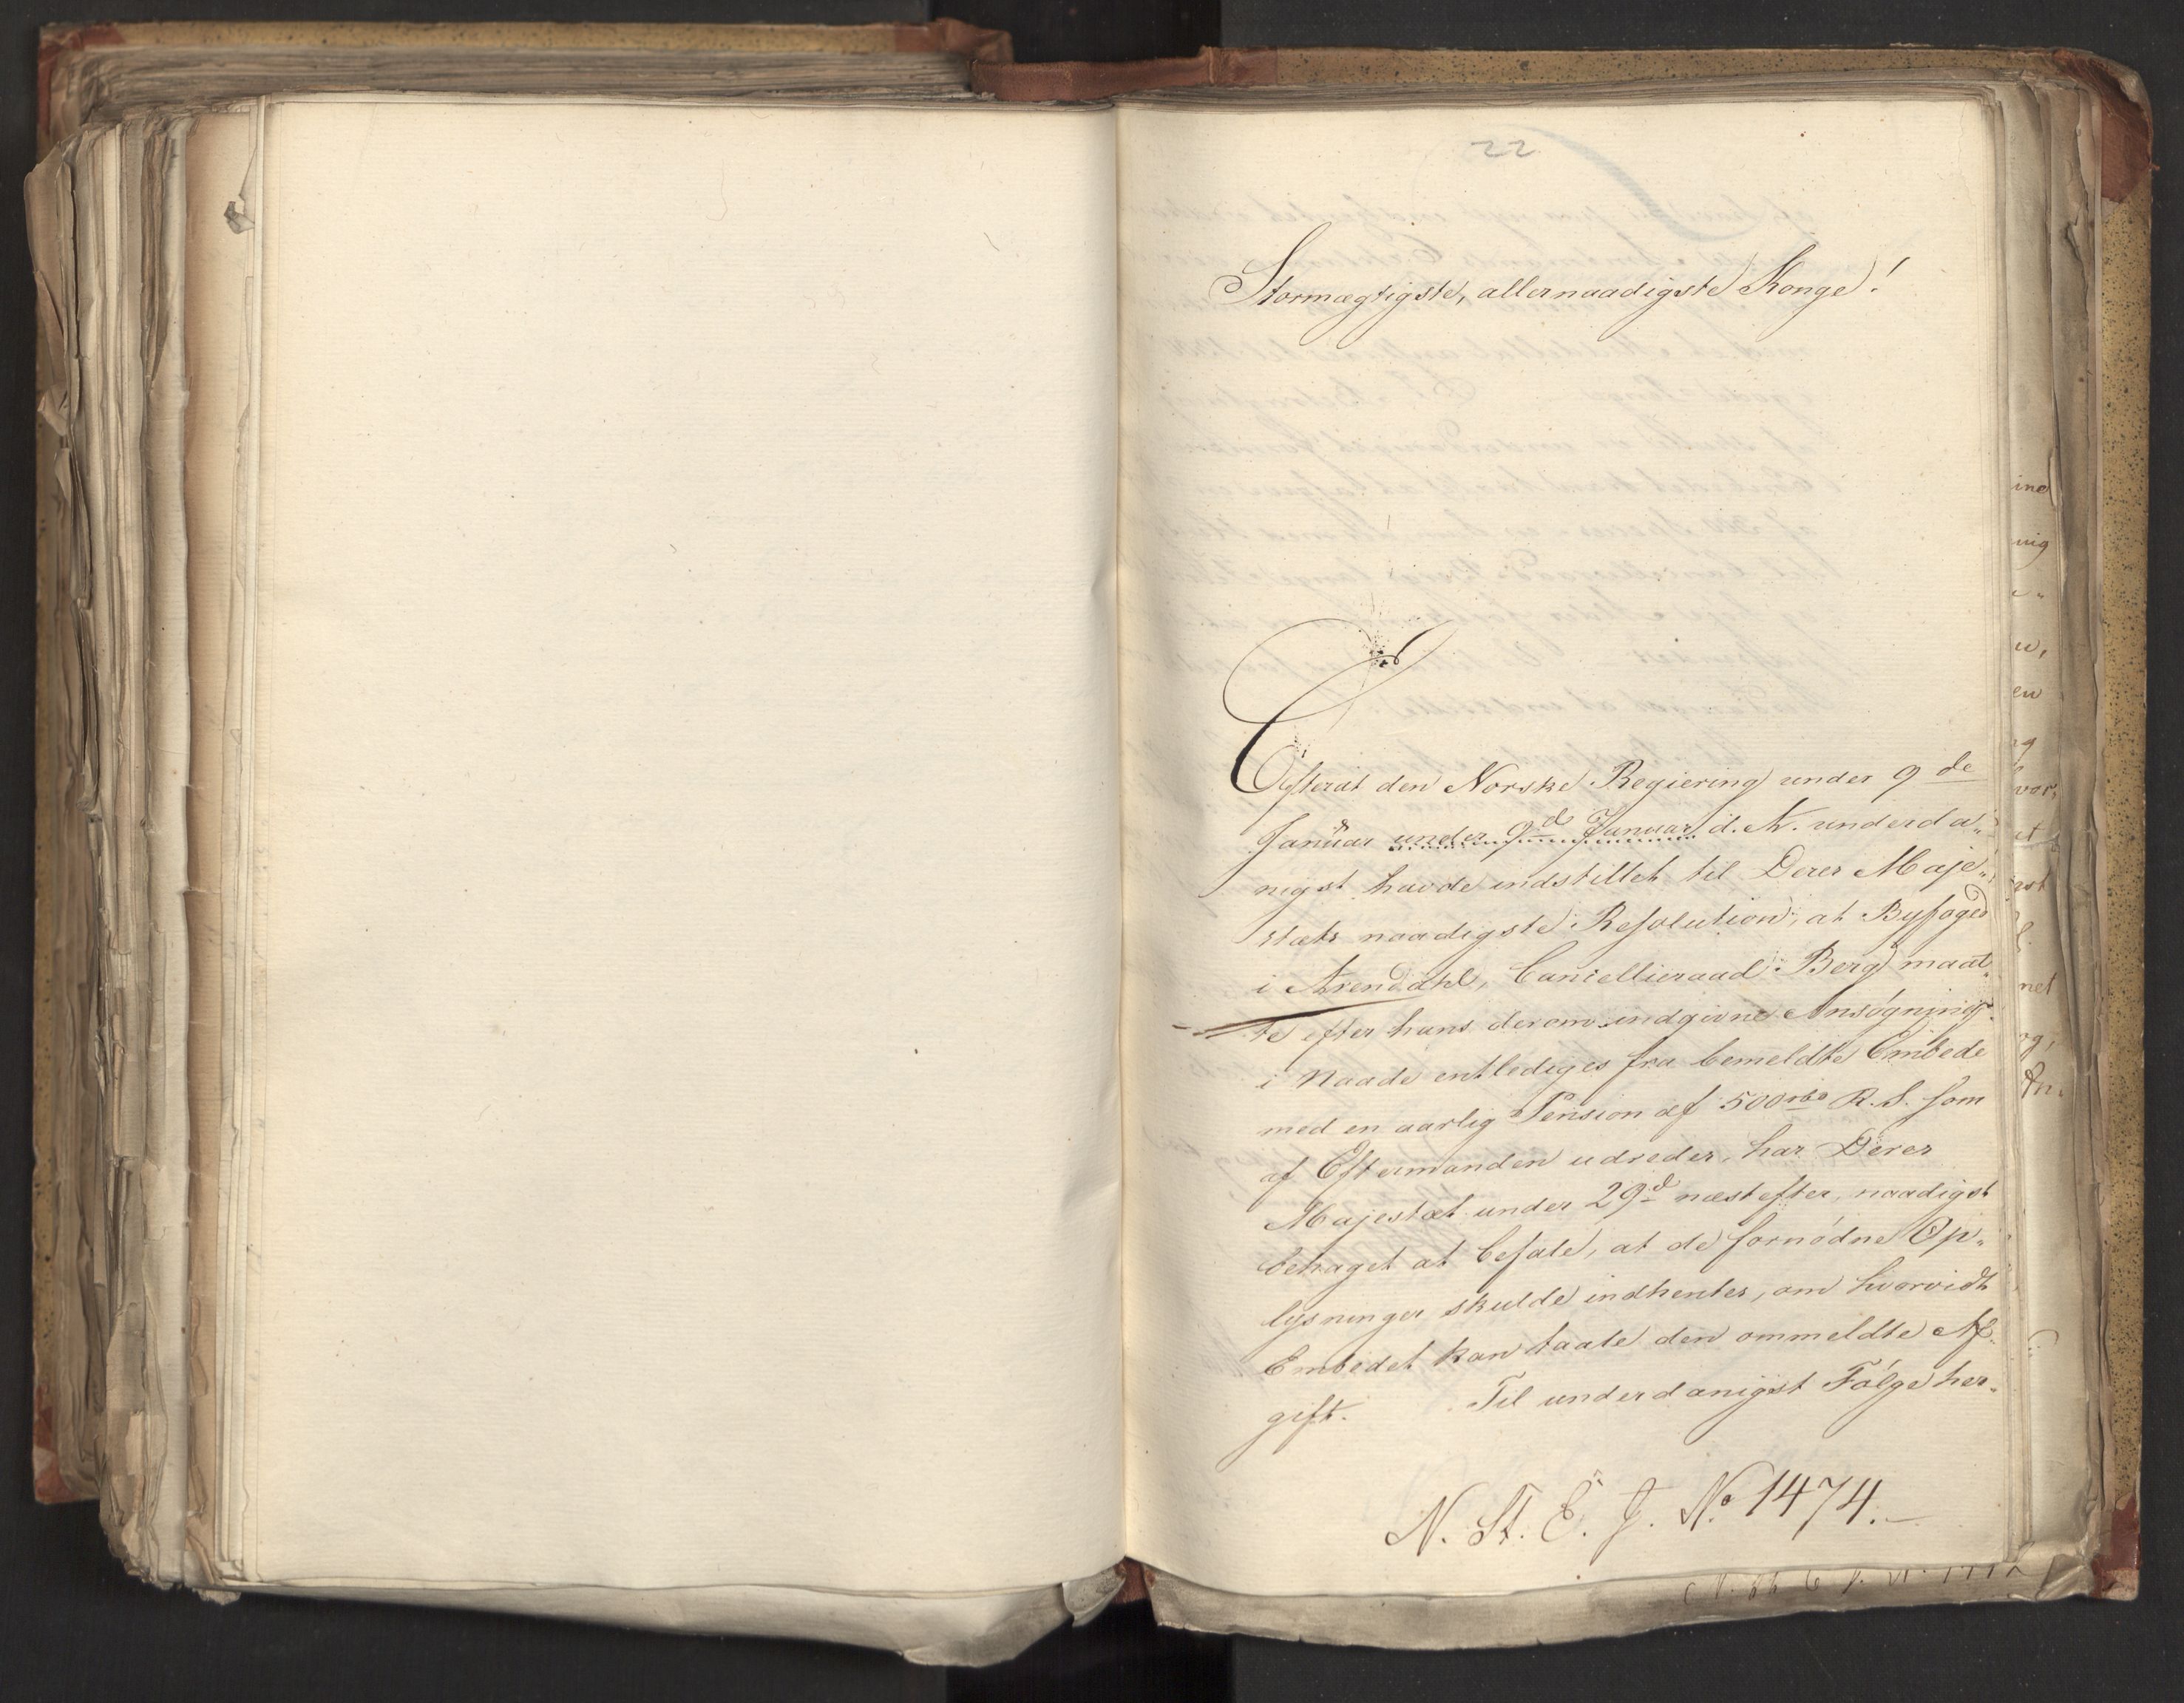 22
Stormægtigste, allernaadigste Konge!
Efterat den Norske Regiering under 9de
Januar under 9d Januar d. A. underda„
nigst havde indstillet til Deres Maje„
stæts naadigste Resolution, at Byfoged
i Arendahl, Cancellieraad Berg maat„
te efter hans derom indgivne Ansøgning
i Naade entlediges fra bemeldte Embede
med en aarlig Pension af 500 rbd R. S. som
af Eftermanden udredes, har Deres
Majestæt under 29d næstefter, naadigst
behaget at befale, at de fornødne Op„
lysninger skulde indhentes, om hvorvidt
Embedet kan taale den ommeldte Af„
gift. Til underdanigst Følge her„
N. St. E. J. No 1474.